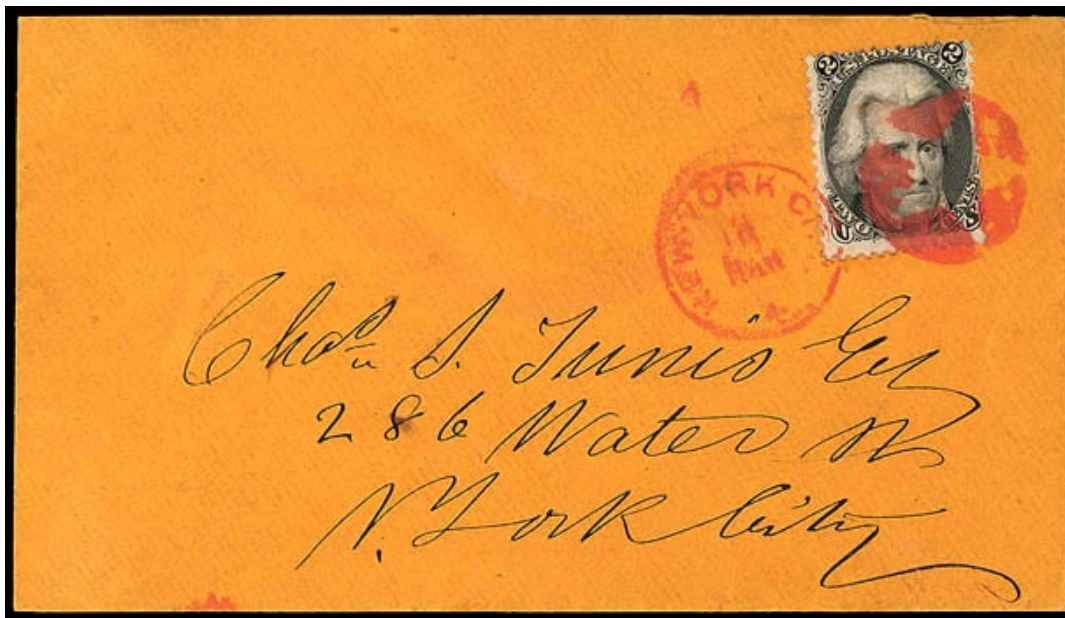 2 2
U.S. POSTAGE
NEW-YORK CITY
MAR
Chas. S. Tunis Esq
286 Water St
N. York City